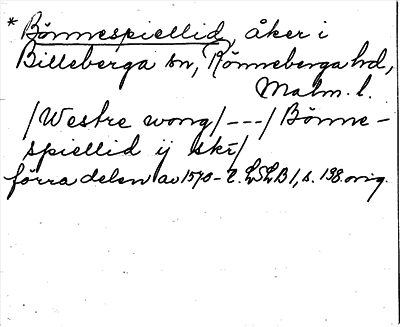 *Bönnespiellid, åker i
Billeberga sn, Rönneberga hd,
Malm. l.
/Westre wong/---/Bönne-
spiellid ij skr/
förra delen av 1570-t. LSLB 1, s. 198. orig.